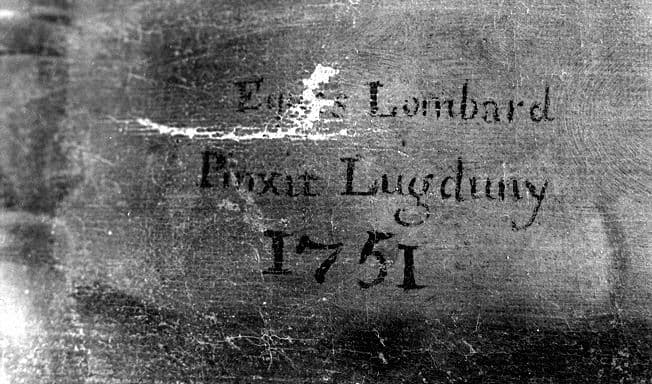 Eques Lombard
Pinxit Lugduny
1751